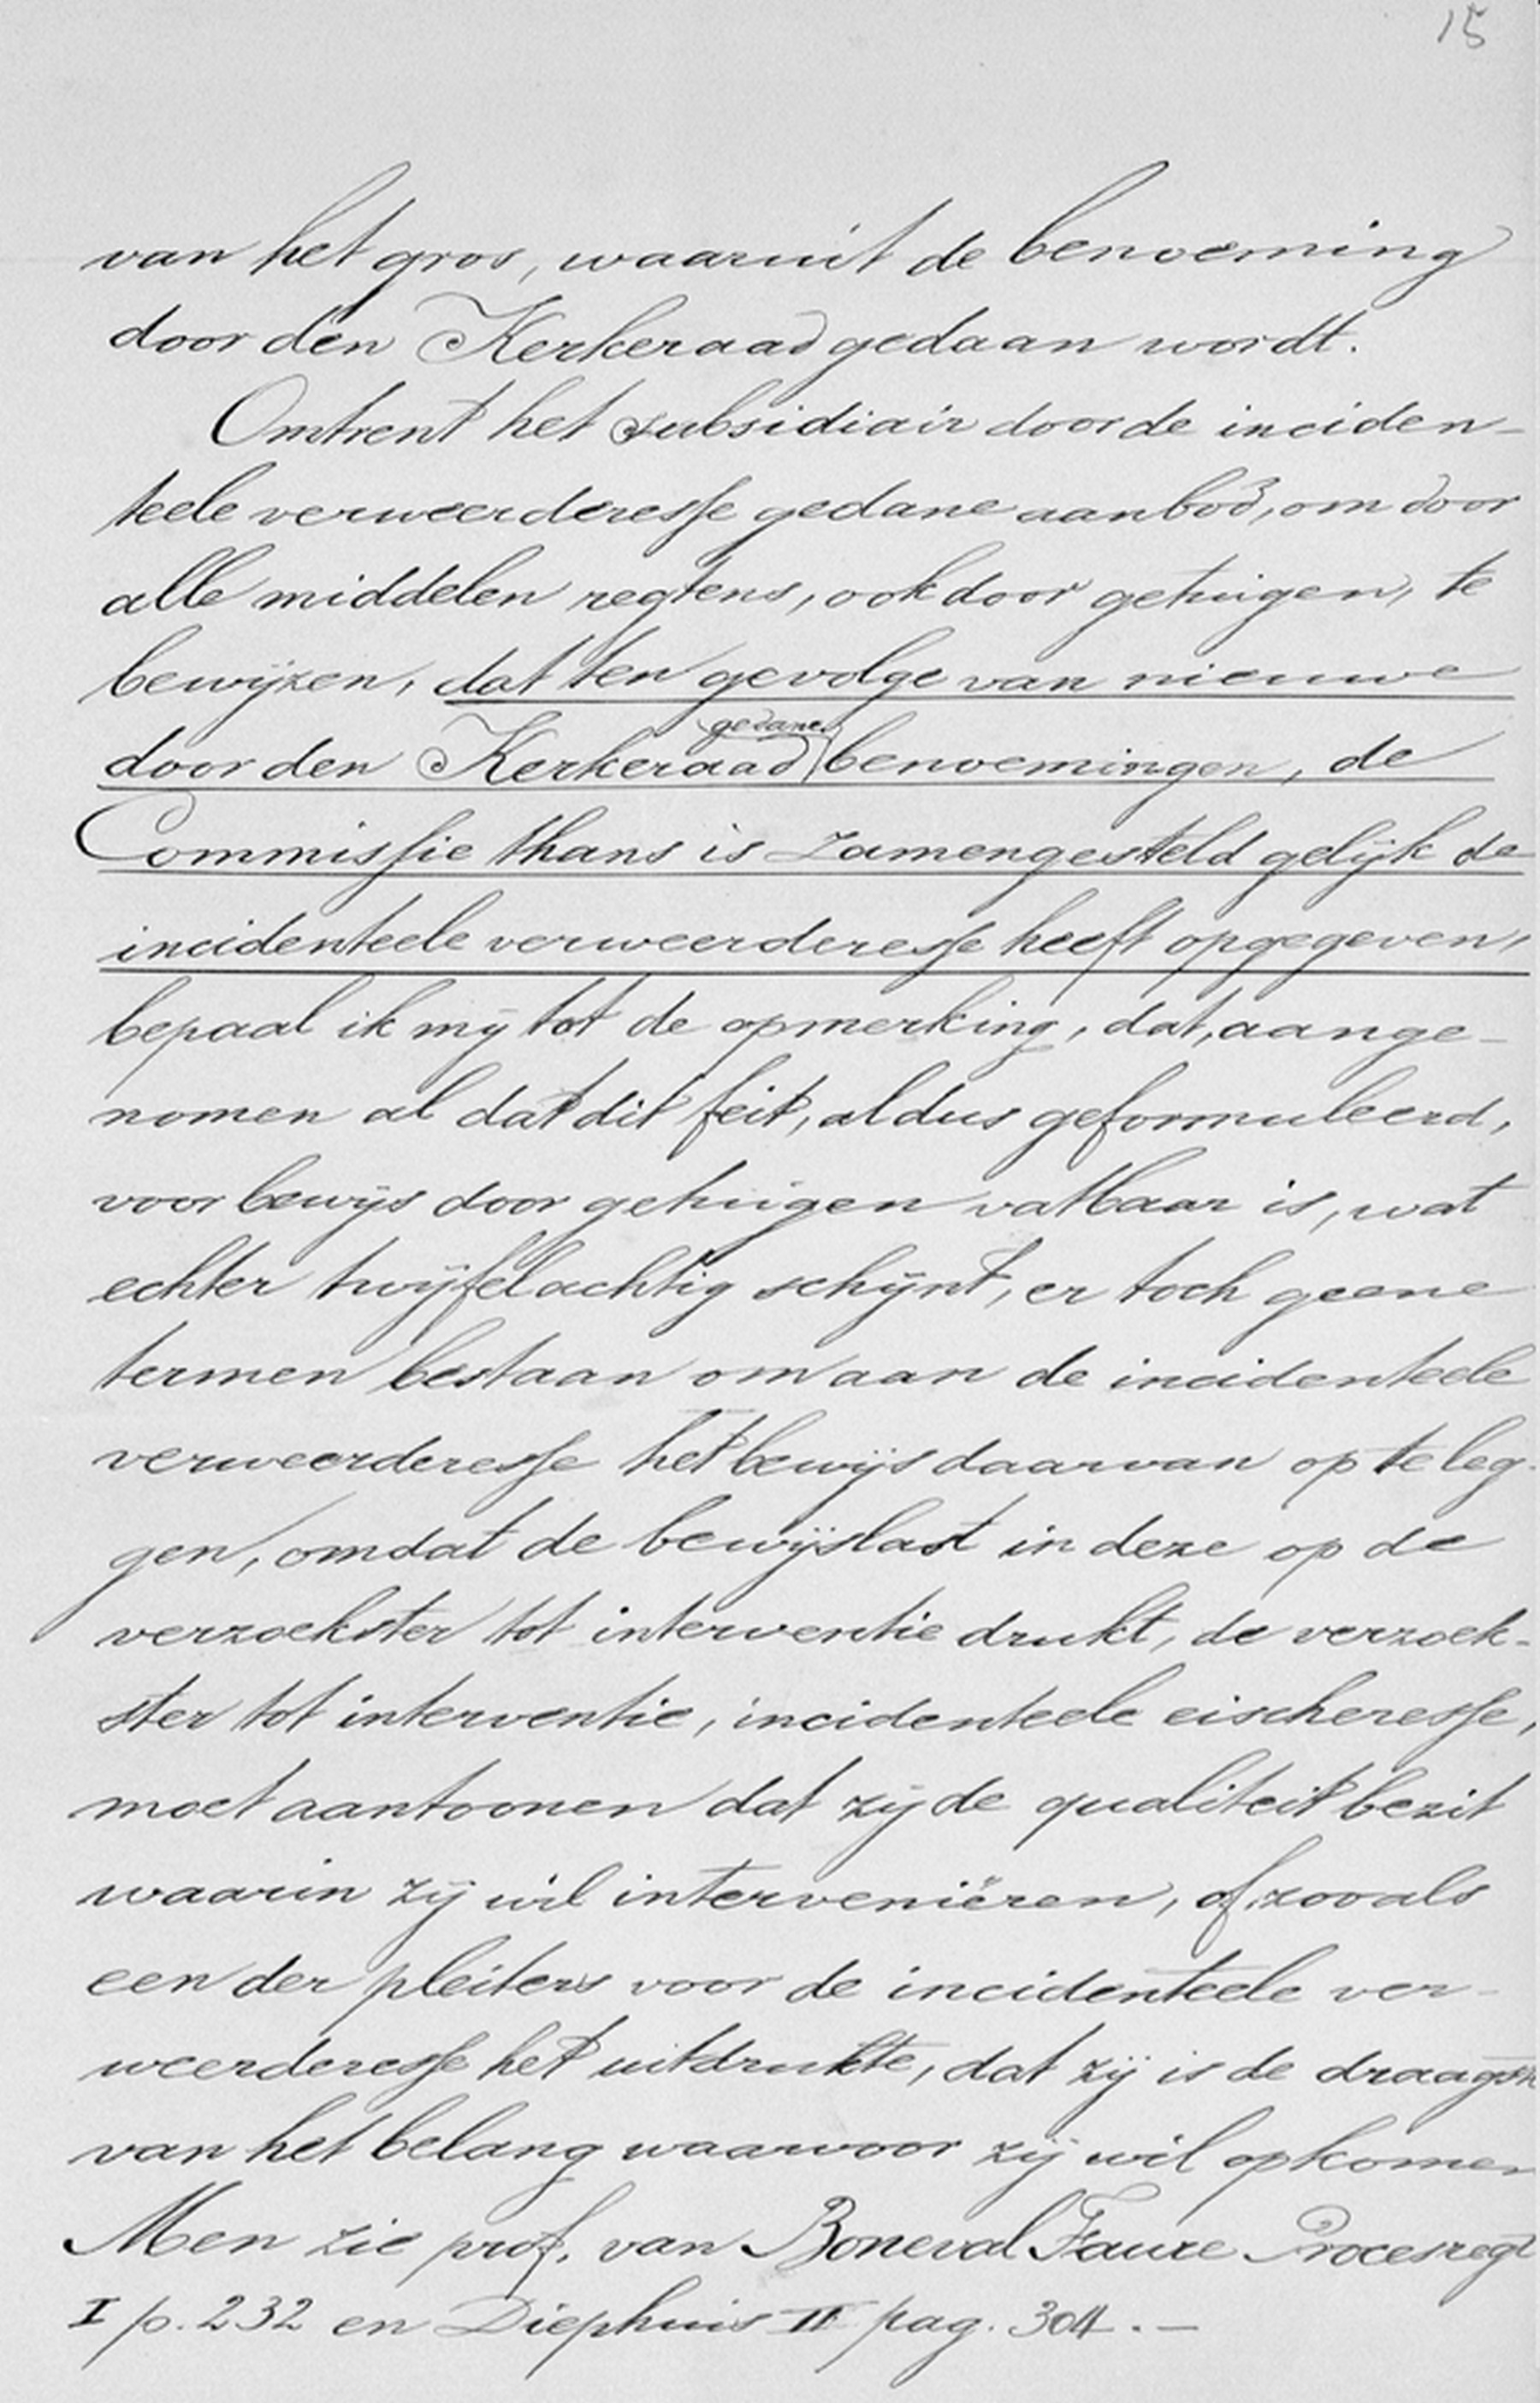 15
van het gros, waaruit de benoeming
door den Kerkeraad gedaan wordt.
Omtrent het subsidiair door de inciden-
teele verweerderesse gedane aanbod, om door
alle middelen regtens, ook door getuigen, te
bewijzen, dat ten gevolge van nieuwe
door den Kerkeraad gedane benoemingen, de
Commissie thans is zamengesteld gelijk de
incidenteele verweerderesse heeft opgegeven,
bepaal ik mij tot de opmerking, dat, aange-
nomen al dat dit feit, aldus geformuleerd,
voor bewijs door getuigen vatbaar is, wat
echter twijfelachtig schijnt, er toch geene
termen bestaan om aan de incidenteele
verweerderesse het bewijs daarvan op te leg-
gen, omdat de bewijslast in deze op de
verzoekster tot interventie drukt, de verzoek-
ster tot interventie, incidenteele eischeresse,
moet aantoonen dat zij de qualiteit bezit
waarin zij wil interveniëren, of, zooals
een der pleiters voor de incidenteele ver-
weerderesse het uitdrukte, dat zij is de
van het belang waarvoor zij wil opkomen
Men zie prof. van Boneval Faure Procesregt
I p. 232 en Diephuis II pag. 304. —